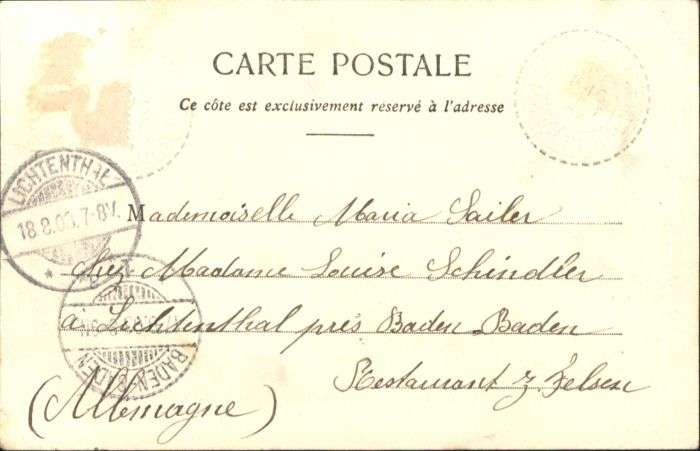 CARTE POSTALE
Ce côte est exclusivement réservé à l'adresse
LICHTENTHAL
18.8.00.7-8V.
Mademoiselle Maria Sailer
chez Madame Louise Schindler
à Lichtenthal près Baden Baden
BADEN-BADEN
Restaurant z. Felsen
(Allemagne)